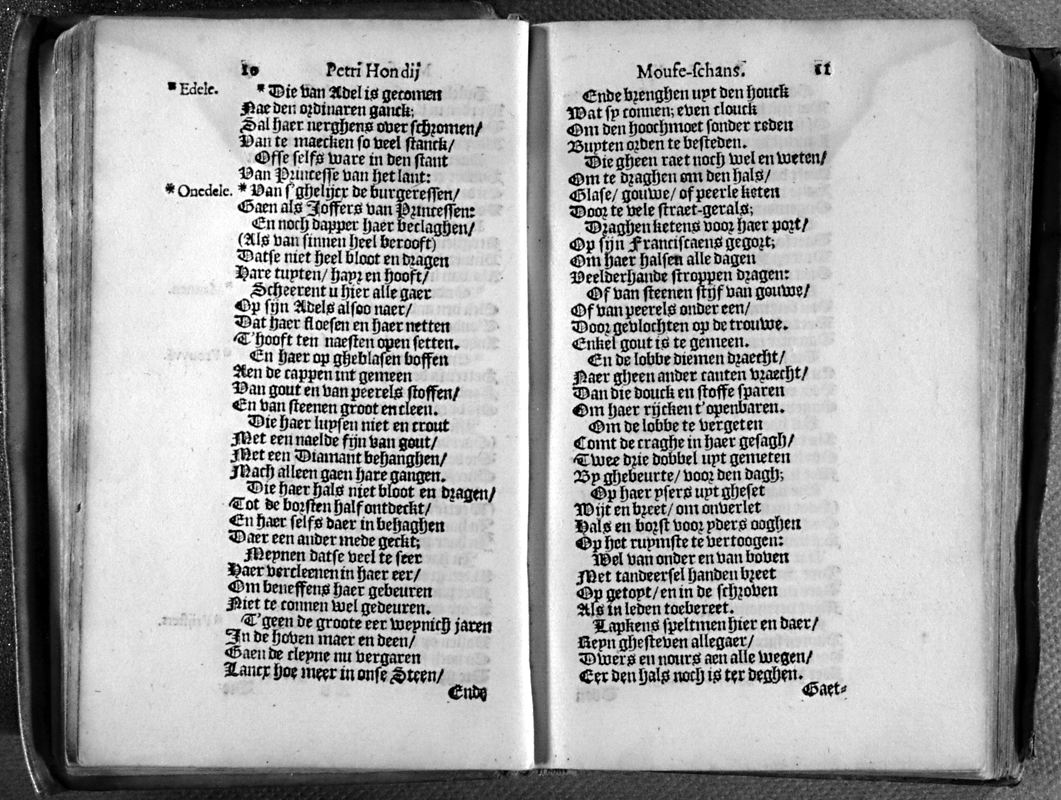 10 Petri Hondij
* Edele. * Die van Adel is gecomen
Nae den ordinaren ganck;
Sal haer nerghens over schromen/
Van te maecken so veel stanck/
Ofse selfs ware in den stant
Van Princesse van het lant:
* Onedele. * Van s'ghelijcx de burgeressen/
Gaen als Joffers van Princessen:
En noch dapper haer beclaghen/
(Als van sinnen heel berooft)
Datse niet heel bloot en dragen
Hare tuyten/ hayr en hooft/
Scheerent u hier alle gaer
Op sijn Adels alsoo naer/
Dat haer floesen en haer netten
T'hooft ten naesten open setten.
En haer op gheblasen boffen
Aen de cappen int gemeen
Van gout en van peerels stoffen/
En van steenen groot en cleen.
Die haer luysen niet en crout
Met een naelde fijn van gout/
Met een Diamant behanghen/
Mach alleen gaen hare gangen.
Die haer hals niet bloot en dragen/
Tot de borsten half ontdeckt/
En haer selfs daer in behaghen
Daer een ander mede geckt;
Meynen datse veel te seer
Haer vercleenen in haer eer/
Om beneffens haer gebeuren
Niet te connen wel gedeuren.
T'geen de groote eer weynich jaren
In de hoven maer en deen/
Gaen de cleyne nu vergaren
Lancx hoe meer in onse Steen/
Ende
Mouse-schans. 11
Ende brenghen uyt den houck
Wat sy connen; even clouck
Om den hoochmoet sonder reden
Buyten orden te besteden.
Die gheen raet noch wel en weten/
Om te draghen om den hals/
Glase/ gouwe/ of peerle keten
Door te vele straet-gerals;
Draghen ketens voor haer port/
Op sijn Franciscaens gegort;
Om haer halsen alle dagen
Veelderhande stroppen dragen:
Of van steenen stijf van gouwe/
Of van peerels onder een/
Door gevlochten op de trouwe.
Enkel gout is te gemeen.
En de lobbe diemen draecht/
Naer gheen ander canten vraecht/
Dan die douck en stoffe sparen
Om haer rijcken t'openbaren.
Om de lobbe te vergeten
Comt de craghe in haer gesagh/
Twee drie dobbel uyt gemeten
By ghebeurte/ voor den dagh;
Op haer ysers uyt gheset
Wijt en breet/ om onverlet
Hals en borst voor yders ooghen
Op het ruymste te vertoogen:
Wel van onder en van boven
Met tandeersel handen breet
Op getoyt/ en in de schroven
Als in leden toebereet.
Lapkens speltmen hier en daer/
Reyn ghesteven allegaer/
Dwers en nours aen alle wegen/
Eer den hals noch is ter deghen.
Gaet-